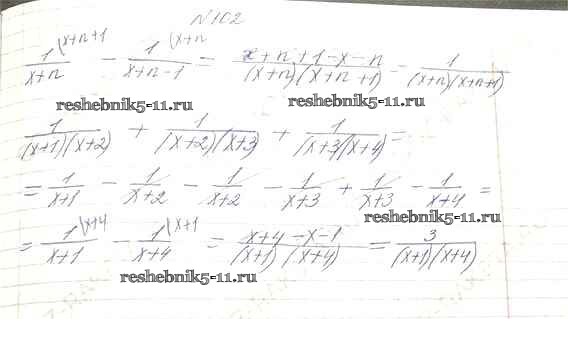 N 102
1\(x+n+1 / x+n − 1\(x+n / x+n-1 = x+n+1-x-n / (x+n)(x+n+1) − 1 / (x+n)(x+n+1)
reshebnik5-11.ru
reshebnik5-11.ru
1 / (x+1)(x+2) + 1 / (x+2)(x+3) + 1 / (x+3)(x+4) =
= 1 / x+1 − 1 / x+2 − 1 / x+2 − 1 / x+3 + 1 / x+3 − 1 / x+4 =
reshebnik5-11.ru
= 1\(x+4 / x+1 − 1\(x+1 / x+4 = x+4-x-1 / (x+1)(x+4) = 3 / (x+1)(x+4)
reshebnik5-11.ru